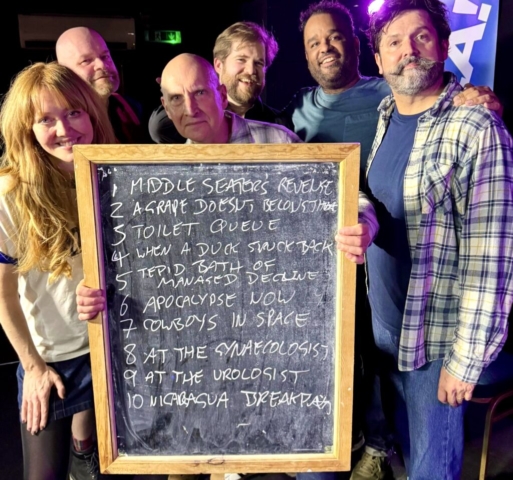 1 MIDDLE SEATER'S REVENGE
2 A GRAPE DOESN'T BELONG THERE
3 TOILET QUEUE
4 WHEN A DUCK SNUCK BACK
5 TEPID BATH OF
MANAGED DECLINE
6 APOCALYPSE NOW
7 COWBOYS IN SPACE
8 AT THE GYNAECOLOGIST
9 AT THE UROLOGIST
10 NICARAGUA BREAKDAY
A!